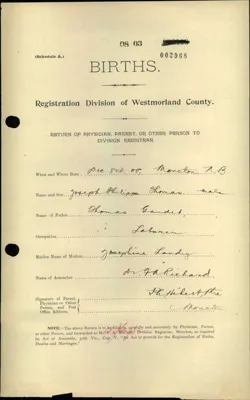 08 03
(Schedule A.)
003968
BIRTHS.
Registration Division of Westmorland County.
RETURN OF PHYSICIAN, PARENT, OR OTHER PERSON TO
DIVISION REGISTRAR.
When and Where Born, Dec 3rd 08 Moncton N B
Name and Sex, Joseph Philippe Thomas male
Name of Father, Thomas Gaudet,
Occupation, Laborer
Maiden Name of Mother, Josephine Landry
Name of Accoucheur, Dr Richard
Signature of Parent,
Physician or Other
Person, and Post
Office Address, Moncton
NOTE.—The above Return is to be carefully and accurately by Physician, Parent,
or other Person, and forwarded to Division Registrar, Moncton, as required
by Act of Assembly, Vic., Cap. "An Act to provide for the Registration of Births,
Deaths and Marriages."